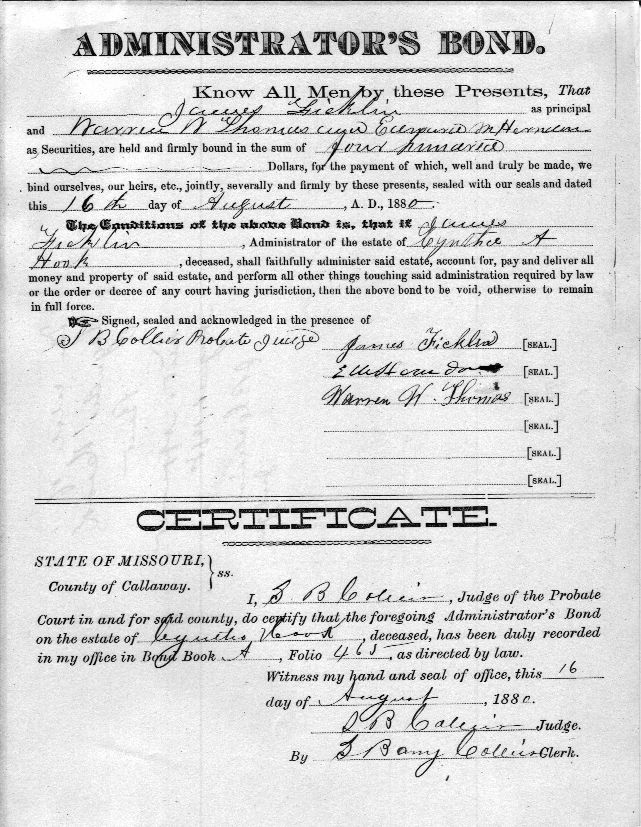 ADMINISTRATOR'S BOND.
Know All Men by these Presents, That
James Ficklin as principal
and Warren W Thomas and Edmund M Herndon
as Securities, are held and firmly bound in the sum of four hundred
Dollars, for the payment of which, well and truly be made, we
bind ourselves, our heirs, etc., jointly, severally and firmly by these presents, sealed with our seals and dated
this 16th day of August, A. D., 1880.
The Conditions of the above Bond is, that if James
Ficklin, Administrator of the estate of Cynthia A
Hook, deceased, shall faithfully administer said estate, account for, pay and deliver all
money and property of said estate, and perform all other things touching said administration required by law
or the order or decree of any court having jurisdiction, then the above bond to be void, otherwise to remain
in full force.
Signed, sealed and acknowledged in the presence of
B Collier Probate Judge James Ficklin [SEAL.]
[SEAL.]
Warren W. Thomas [SEAL.]
[SEAL.]
[SEAL.]
[SEAL.]
CERTIFICATE.
STATE OF MISSOURI, } ss.
County of Callaway.
I, B Collier, Judge of the Probate
Court in and for said county, do certify that the foregoing Administrator's Bond
on the estate of Cyntha Hook, deceased, has been duly recorded
in my office in Bond Book A, Folio 465, as directed by law.
Witness my hand and seal of office, this 16
day of August, 1880.
B Collier Judge.
By Collier Clerk.